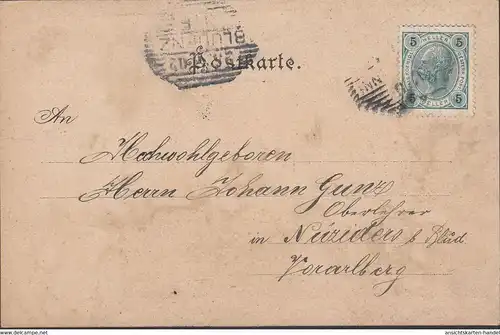 BLUDENZ
Postkarte.
5 HELLER 5
5 HELLER 5
An
Hochwohlgeboren
Herrn Johann Gunz
Oberlehrer
in Nüziders b Blud
Vorarlberg
ansichtskarten-handel